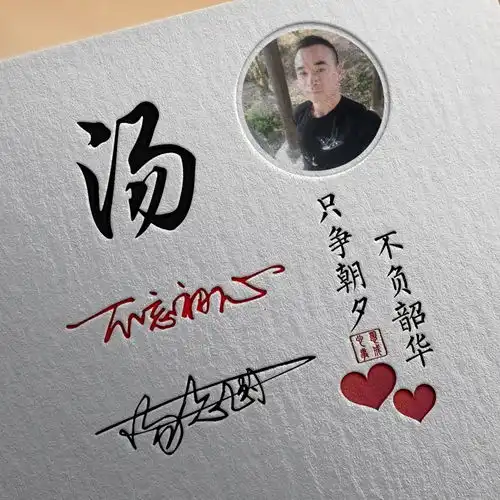 汤
不忘初心
只争朝夕
不负韶华